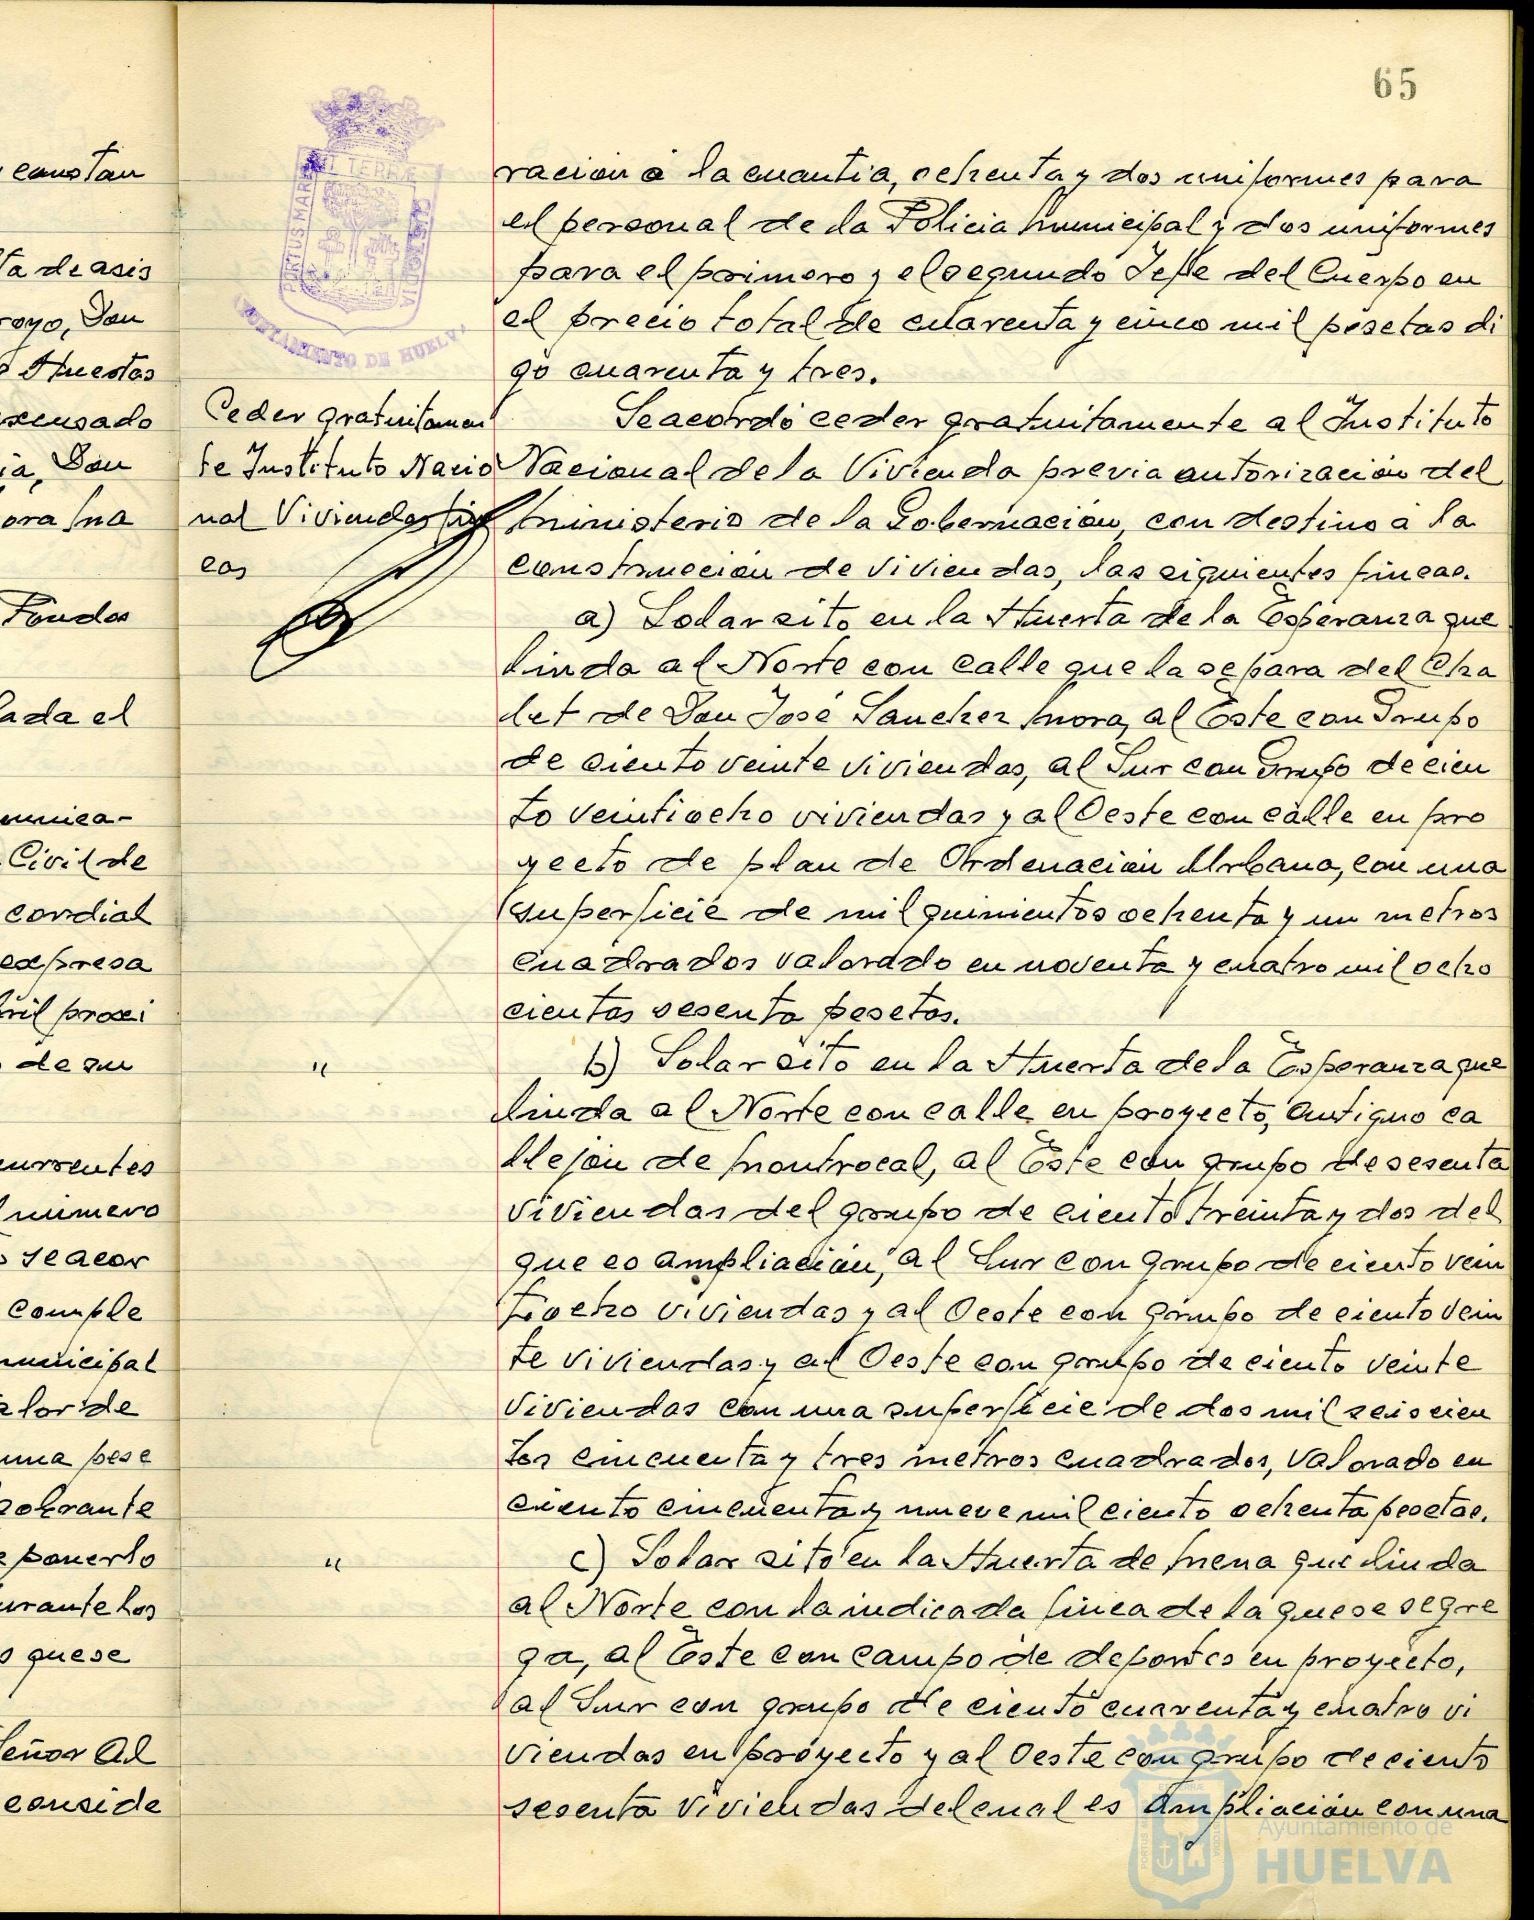 65
constan
ta de asis
royo, Don
Huestas
excusado
ia, Don
ora Ma
Fondos
lada el
omunica-
Civil de
cordial
expresa
bril proxi
de su
currentes
l número
se acor
comple
municipal
alor de
una pese
sobrante
ponerlo
urante los
que se
Señor Al
conside
PORTUS MARIS
ET TERRÆ
CUSTODIA
AYUNTAMIENTO DE HUELVA
Ceder gratuitamen
te Instituto Nacio
nal Viviendas fin
cas
"
"
ración á la cuantia, ochenta y dos uniformes para
el personal de la Policia Municipal y dos uniformes
para el primero y el segundo Jefe del Cuerpo en
el precio total de cuarenta y cinco mil pesetas di
go cuarenta y tres.
Se acordó ceder gratuitamente al Instituto
Nacional de la Vivienda previa autorización del
Ministerio de la Gobernación, con destino a la
construcción de viviendas, las siguientes fincas.
a) Solar sito en la Huerta de la Esperanza que
linda al Norte con calle que la separa del Cha
let de Don José Sanchez Mora, al Este con Grupo
de ciento veinte viviendas, al Sur con Grupo de cien
to veintiocho viviendas y al Oeste con calle en pro
yecto de plan de Ordenación Urbana, con una
superficie de mil quinientos ochenta y un metros
cuadrados valorado en noventa y cuatro mil ocho
cientas sesenta pesetas.
b) Solar sito en la Huerta de la Esperanza que
linda al Norte con calle en proyecto, antiguo ca
llejón de Montrocal, al Este con grupo de sesenta
viviendas del grupo de ciento treinta y dos del
que es ampliación, al Sur con grupo de ciento vein
tiocho viviendas y al Oeste con grupo de ciento vein
te viviendas y al Oeste con grupo de ciento veinte
viviendas con una superficie de dos mil seiscien
tos cincuenta y tres metros cuadrados, valorado en
ciento cincuenta y nueve mil ciento ochenta pesetas.
c) Solar sito en la Huerta de Mena que linda
al Norte con la indicada finca de la que se segre
ga, al Este con campo de deportes en proyecto,
al Sur con grupo de ciento cuarenta y cuatro vi
viendas en proyecto y al Oeste con grupo de ciento
sesenta viviendas del cual es ampliación con una
Ayuntamiento de
HUELVA